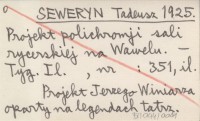 SEWERYN Tadeusz 1925.
Projekt polichromji sali
rycerskiej na Wawelu. —
Tyg. Il. , nr : 351, il.
Projekt Jerzego Winiarza
oparty na legendach tatrz.